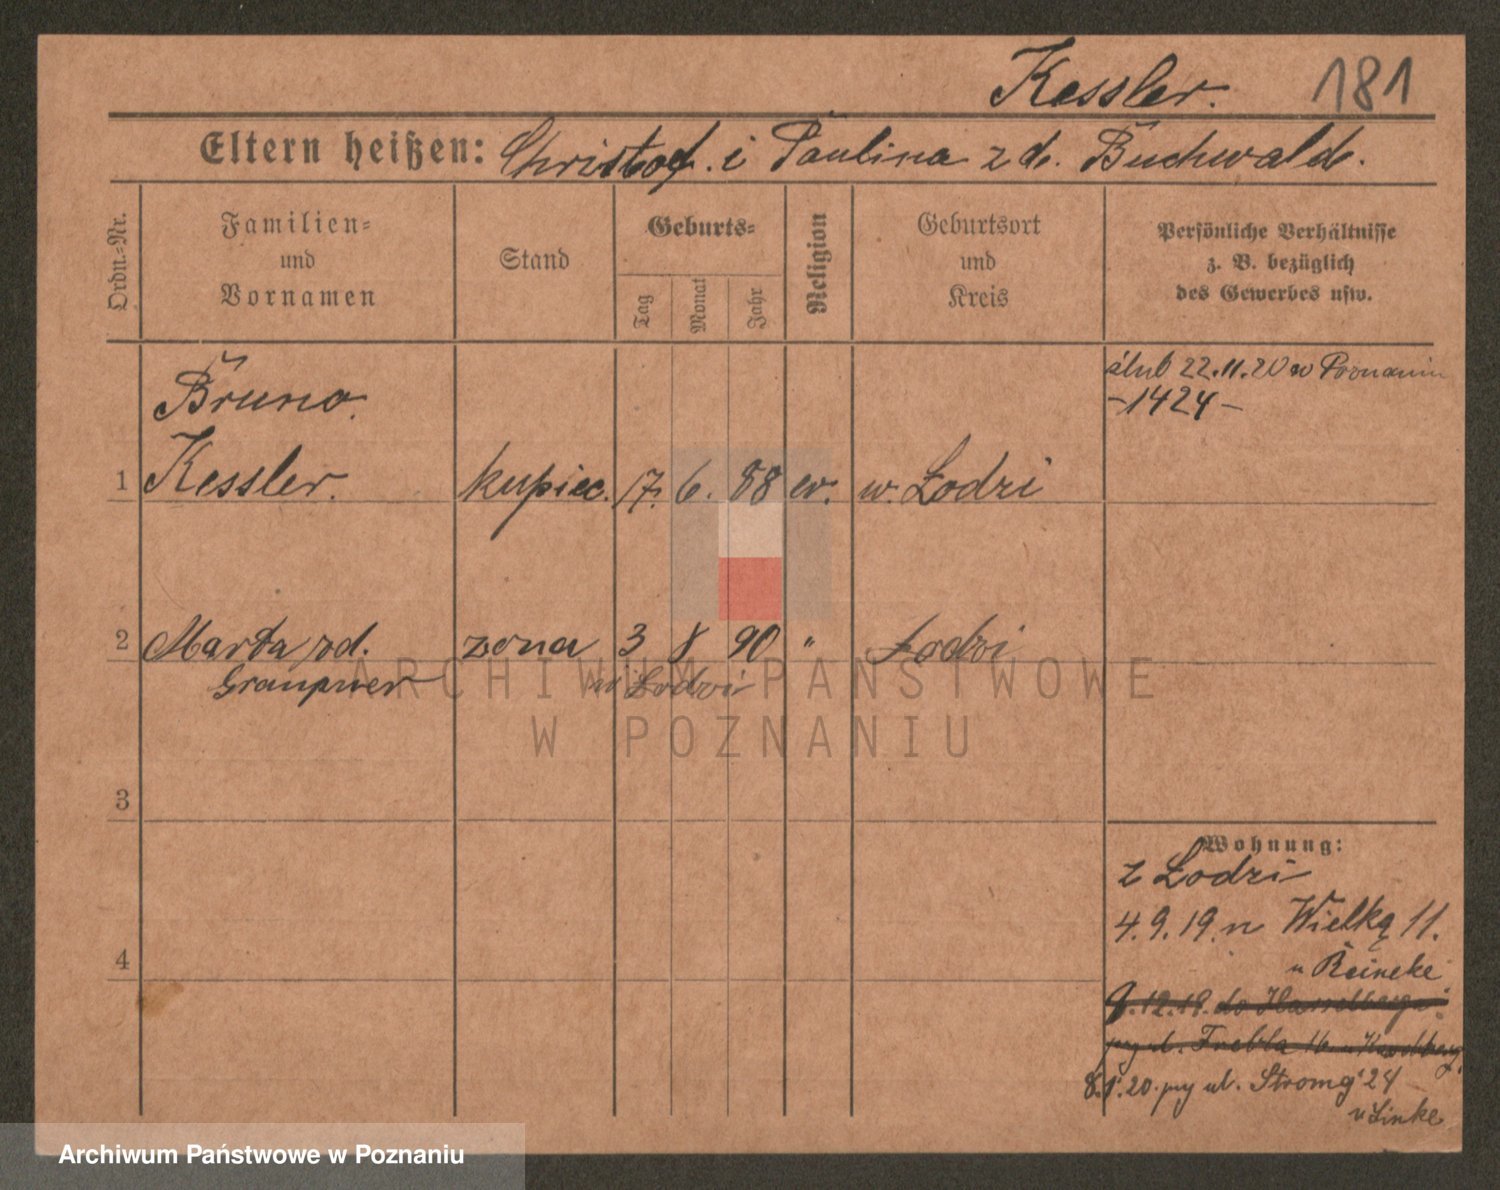 Kessler. 181
Eltern heißen: Christof. i Paulina z d. Buchwald.
Ordn.-Nr.
Familien-
und
Vornamen
Stand
Geburts-
Tag
Monat
Jahr
Religion
Geburtsort
und
Kreis
Persönliche Verhältnisse
z. B. bezüglich
des Gewerbes usw.
ślub 22.11.20 w Poznaniu
-1424-
Bruno.
1 Kessler. kupiec. 17. 6. 88 ew. w. Łodzi
2 Marta zd. żona 3 8 90 " Łodzi
w Łodzi
3
4
Wohnung:
z Łodzi
4.9.19. n Wielką 11.
u Reineke
8.1.20. przy ul. 24
u Linke
ARCHIWUM PAŃSTWOWE
W POZNANIU
Archiwum Państwowe w Poznaniu